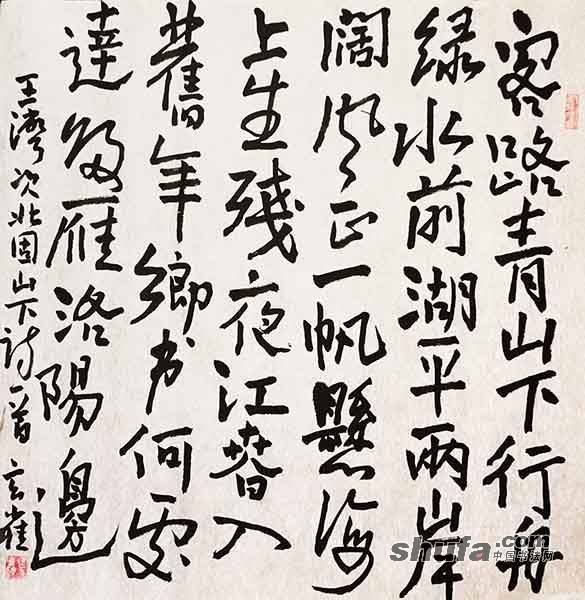 客路青山下行舟
绿水前湖平兩岸
阔风正一帆懸海
上生残夜江春入
舊年鄉书何处
達歸雁洛陽邊
王灣次北固山下诗一首
shufa.com
中国书法网